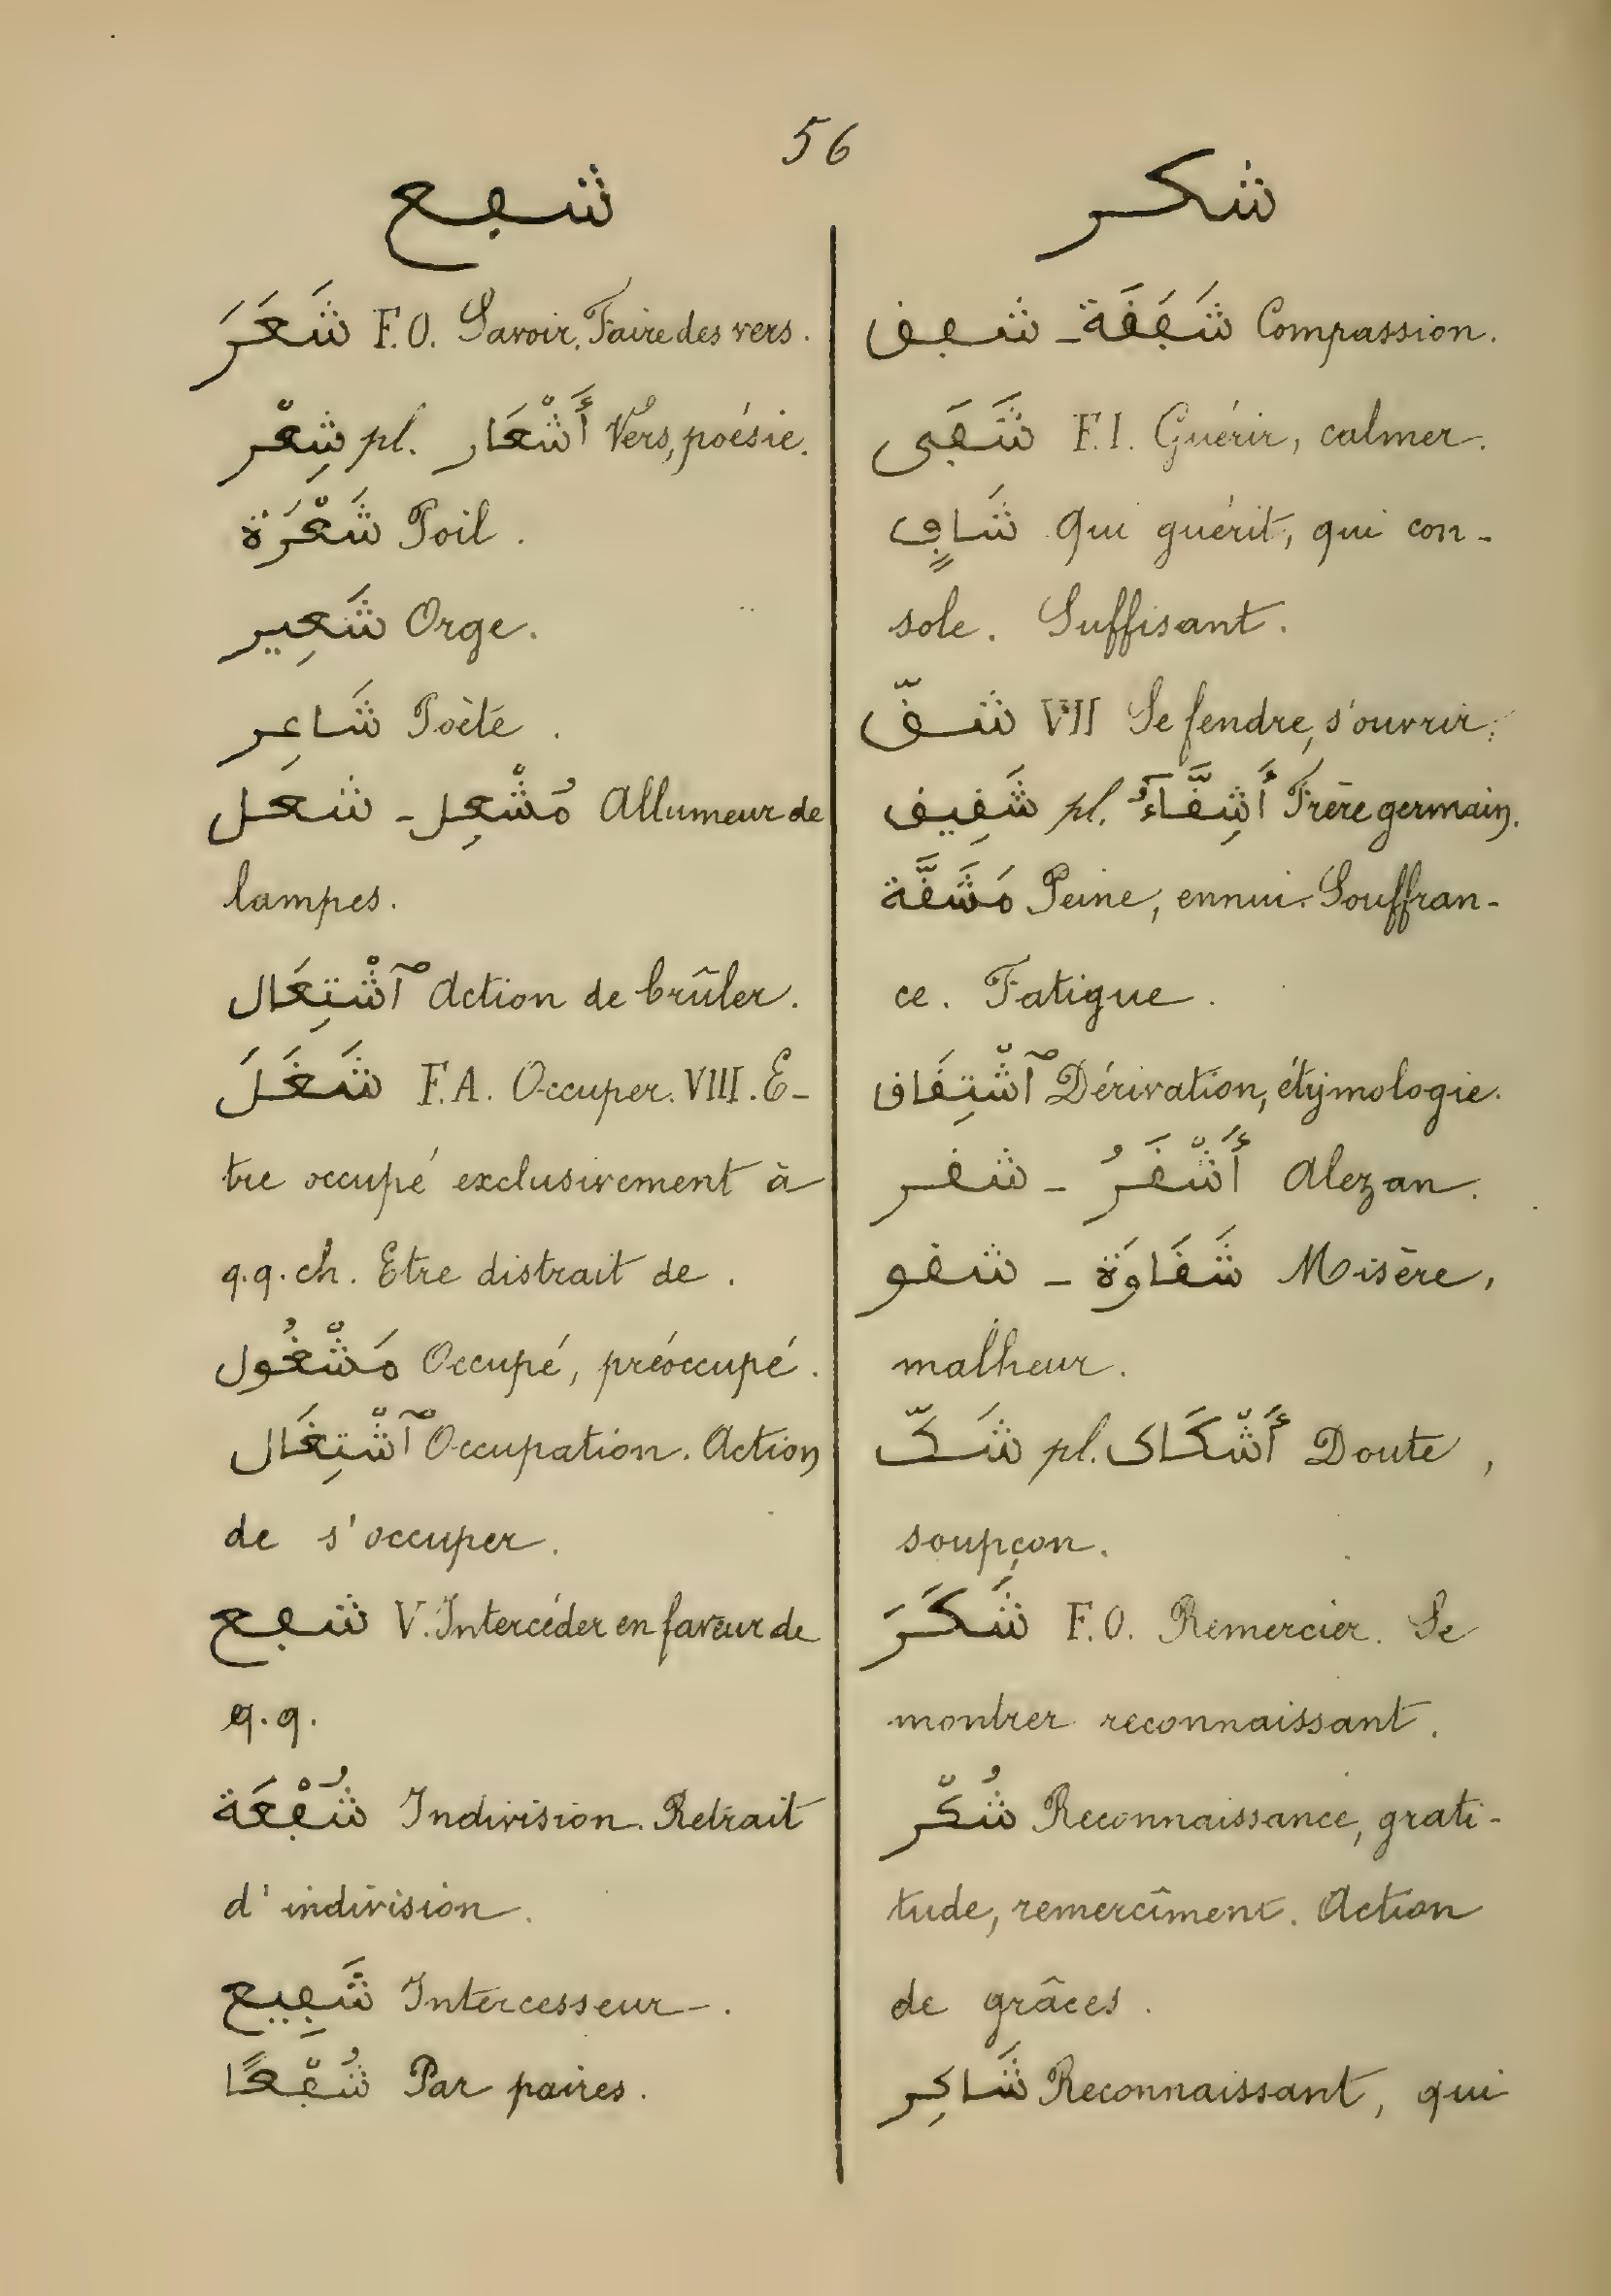 56
شفع
شَعَرَ F.O. Savoir. Faire des vers.
شِعْر pl. أَشْعَار Vers, poésie.
شَعْرَة Poil.
شَعِير Orge.
شَاعِر Poète.
شعل - مُشْعِل Allumeur de
lampes.
ٱشْتِعَال Action de brûler.
شَغَلَ F.A. Occuper. VIII. E-
tre occupé exclusivement à
q.q. ch. Etre distrait de.
مَشْغُول Occupé, préoccupé.
ٱشْتِغَال Occupation. Action
de s'occuper.
شفع V. Intercéder en faveur de
q.q.
شُفْعَة Indivision. Retrait
d'indivision.
شَفِيع Intercesseur.
شُفْعًا Par paires.
شكر
شفق - شَفَقَة Compassion.
شَفَى F.I. Guérir, calmer.
شَافٍ Qui guérit, qui con-
sole. Suffisant.
شقّ VII Se fendre, s'ouvrir.
شَقِيق pl. أَشِقَّآءُ Frère germain.
مَشَقَّة Peine, ennui. Souffran-
ce. Fatigue.
ٱشْتِقَاق Dérivation, étymologie.
شقر - أَشْقَرُ Alezan.
شقو - شَقَاوَة Misère,
malheur.
شَكّ pl. أَشْكَاك Doute,
soupçon.
شَكَرَ F.O. Remercier. Se
montrer reconnaissant.
شُكْر Reconnaissance, grati-
tude, remercîment. Action
de grâces.
شَاكِر Reconnaissant, qui